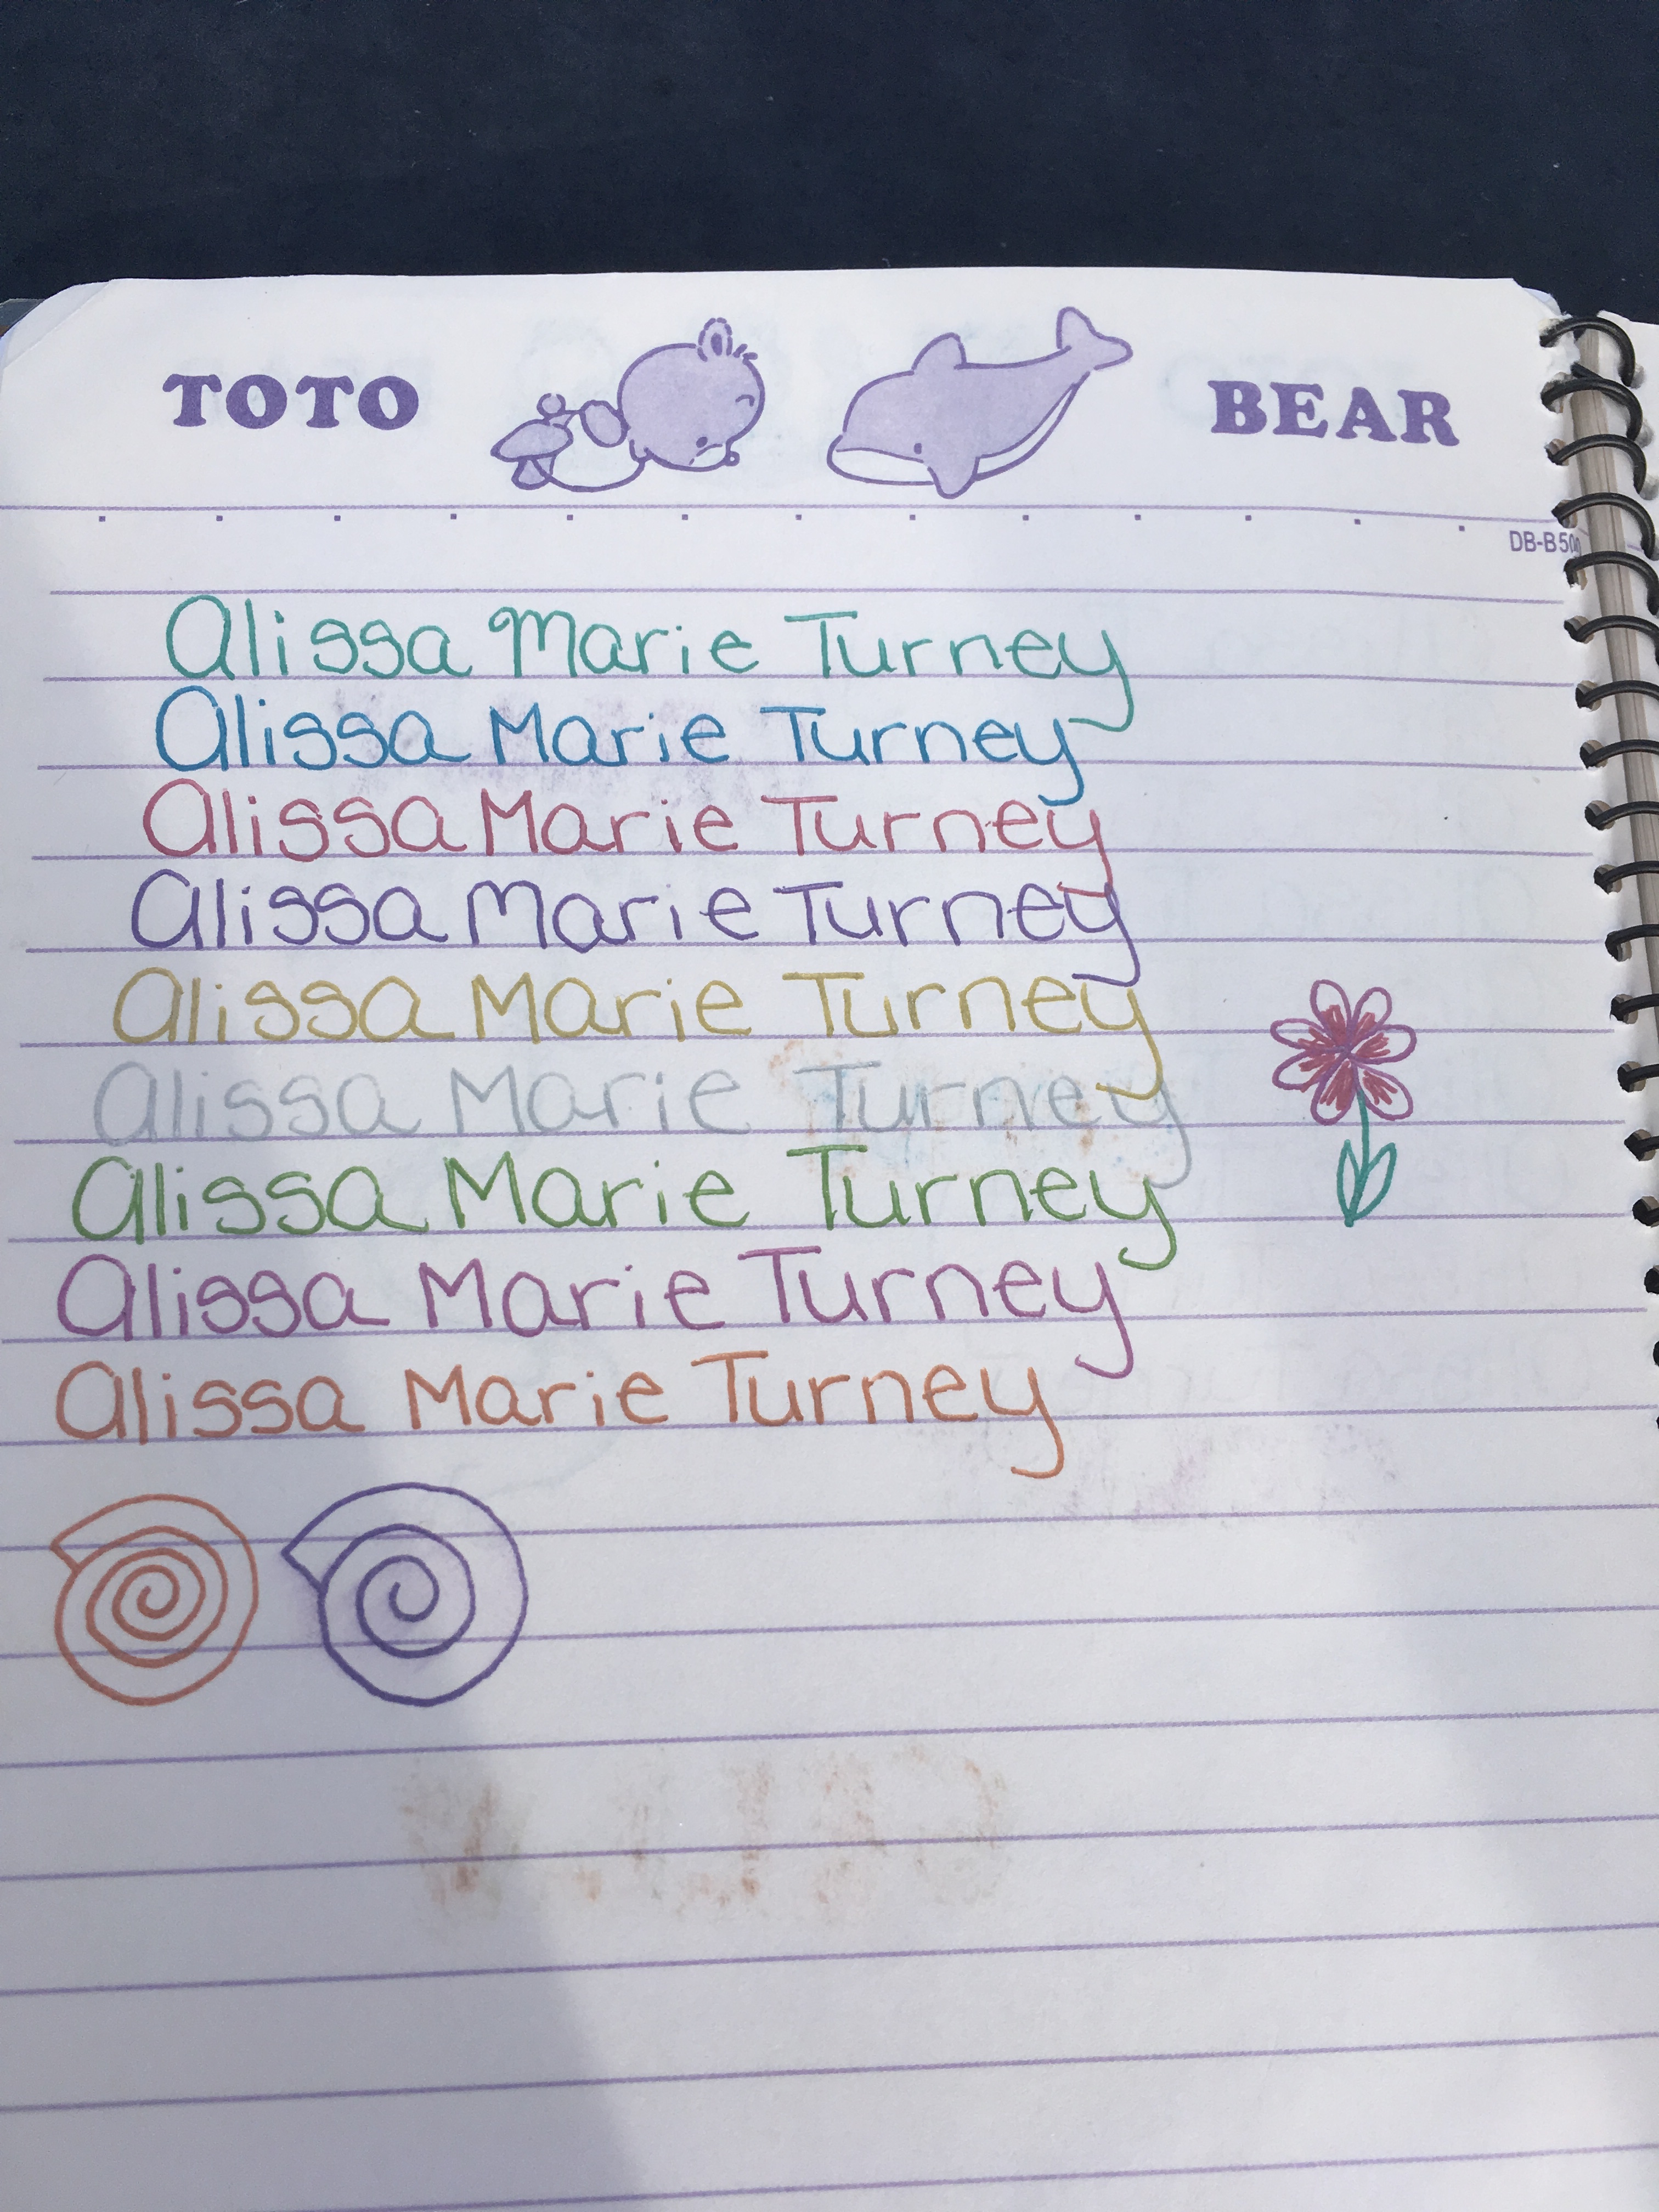 TOTO BEAR
DB-B50
Alissa Marie Turney
Alissa Marie Turney
Alissa Marie Turney
Alissa Marie Turney
Alissa Marie Turney
Alissa Marie Turney
Alissa Marie Turney
Alissa Marie Turney
Alissa Marie Turney